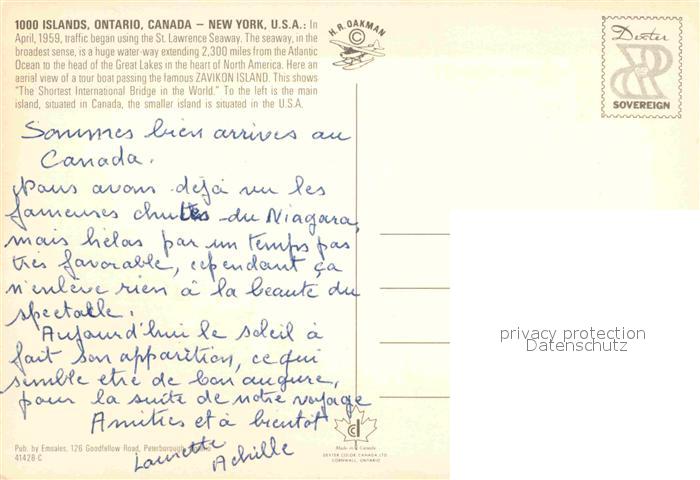 1000 ISLANDS, ONTARIO, CANADA – NEW YORK, U.S.A.: In
April, 1959, traffic began using the St. Lawrence Seaway. The seaway, in the
broadest sense, is a huge water-way extending 2,300 miles from the Atlantic
Ocean to the head of the Great Lakes in the heart of North America. Here an
aerial view of a tour boat passing the famous ZAVIKON ISLAND. This shows
"The Shortest International Bridge in the World." To the left is the main
island, situated in Canada, the smaller island is situated in the U.S.A.
H.R. OAKMAN
©
Dexter
SOVEREIGN
Sommes bien arrives au
Canada.
Nous avons déjà vu les
fameuses chutes du Niagara,
mais hélas par un temps pas
très favorable, cependant ça
n'enlève rien à la beauté du
spectacle.
Aujourd'hui le soleil à
fait son apparition, ce qui
semble etre de bon augure,
pour la suite de notre voyage
Amities et à bientôt
Laurette
Achille
privacy protection
Datenschutz
Pub. by Emsales, 126 Goodfellow Road, Peterborough,
41428-C
Made in Canada
DEXTER COLOR CANADA LTD
CORNWALL, ONTARIO